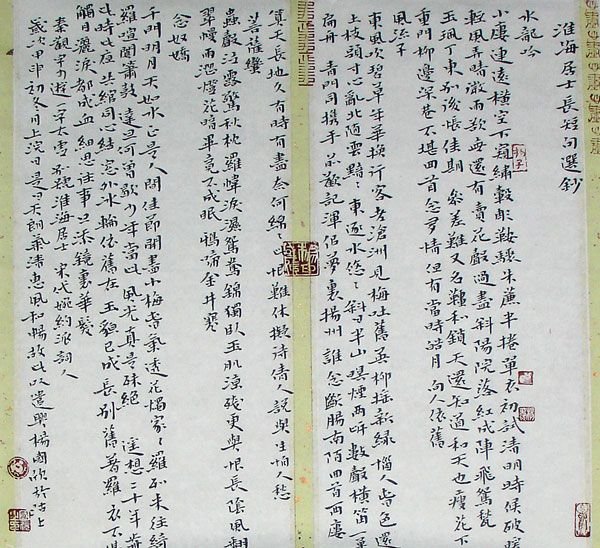 淮海居士長短句選鈔
水龍吟
小樓連遠橫空下窺繡轂彫鞍驟朱簾半捲單衣初試清明時候破暖
輕風弄晴微雨欲無還有賣花聲過盡斜陽院落紅成陣飛鴛甃
玉珮丁東別後悵佳期參差難又名韁利鎖天還知道和天也瘦花下
重門柳邊深巷不堪回首念多情但有當時皓月向人依舊
風流子
東風吹碧草年華換行客老滄洲見梅吐舊英柳搖新綠惱人春色還
上枝頭寸心亂北隨雲黯黯東逐水悠悠斜日半山暝煙兩岸數聲橫笛一葉
扁舟 青門同攜手前歡記渾似夢裏揚州誰念斷腸南陌回首西樓
算天長地久有時有盡奈何綿綿此恨難休擬待倩人說與生怕人愁
菩薩蠻
蟲聲泣露驚秋枕羅幃淚濕鴛鴦錦獨臥玉肌涼殘更與恨長陰風翻
翠幔雨澀燈花暗畢竟不成眠鴉啼金井寒
念奴嬌
千門明月天如水正是人間佳節開盡小梅春氣透花燭家家羅列來往綺
羅喧闐簫鼓達旦何曾歇少年當此風光真是殊絕 遙想二十年前
此時此夜共綰同心結窗外冰輪依舊在玉貌已成長別舊著羅衣不堪
觸目灑淚都成血細思往事只添鏡裏華髮
秦觀字少游一字太虛號淮海居士宋代婉約派詞人
歲次甲申初冬月上浣日是日天朗氣清惠風和暢故此以遣興楊國欣於上